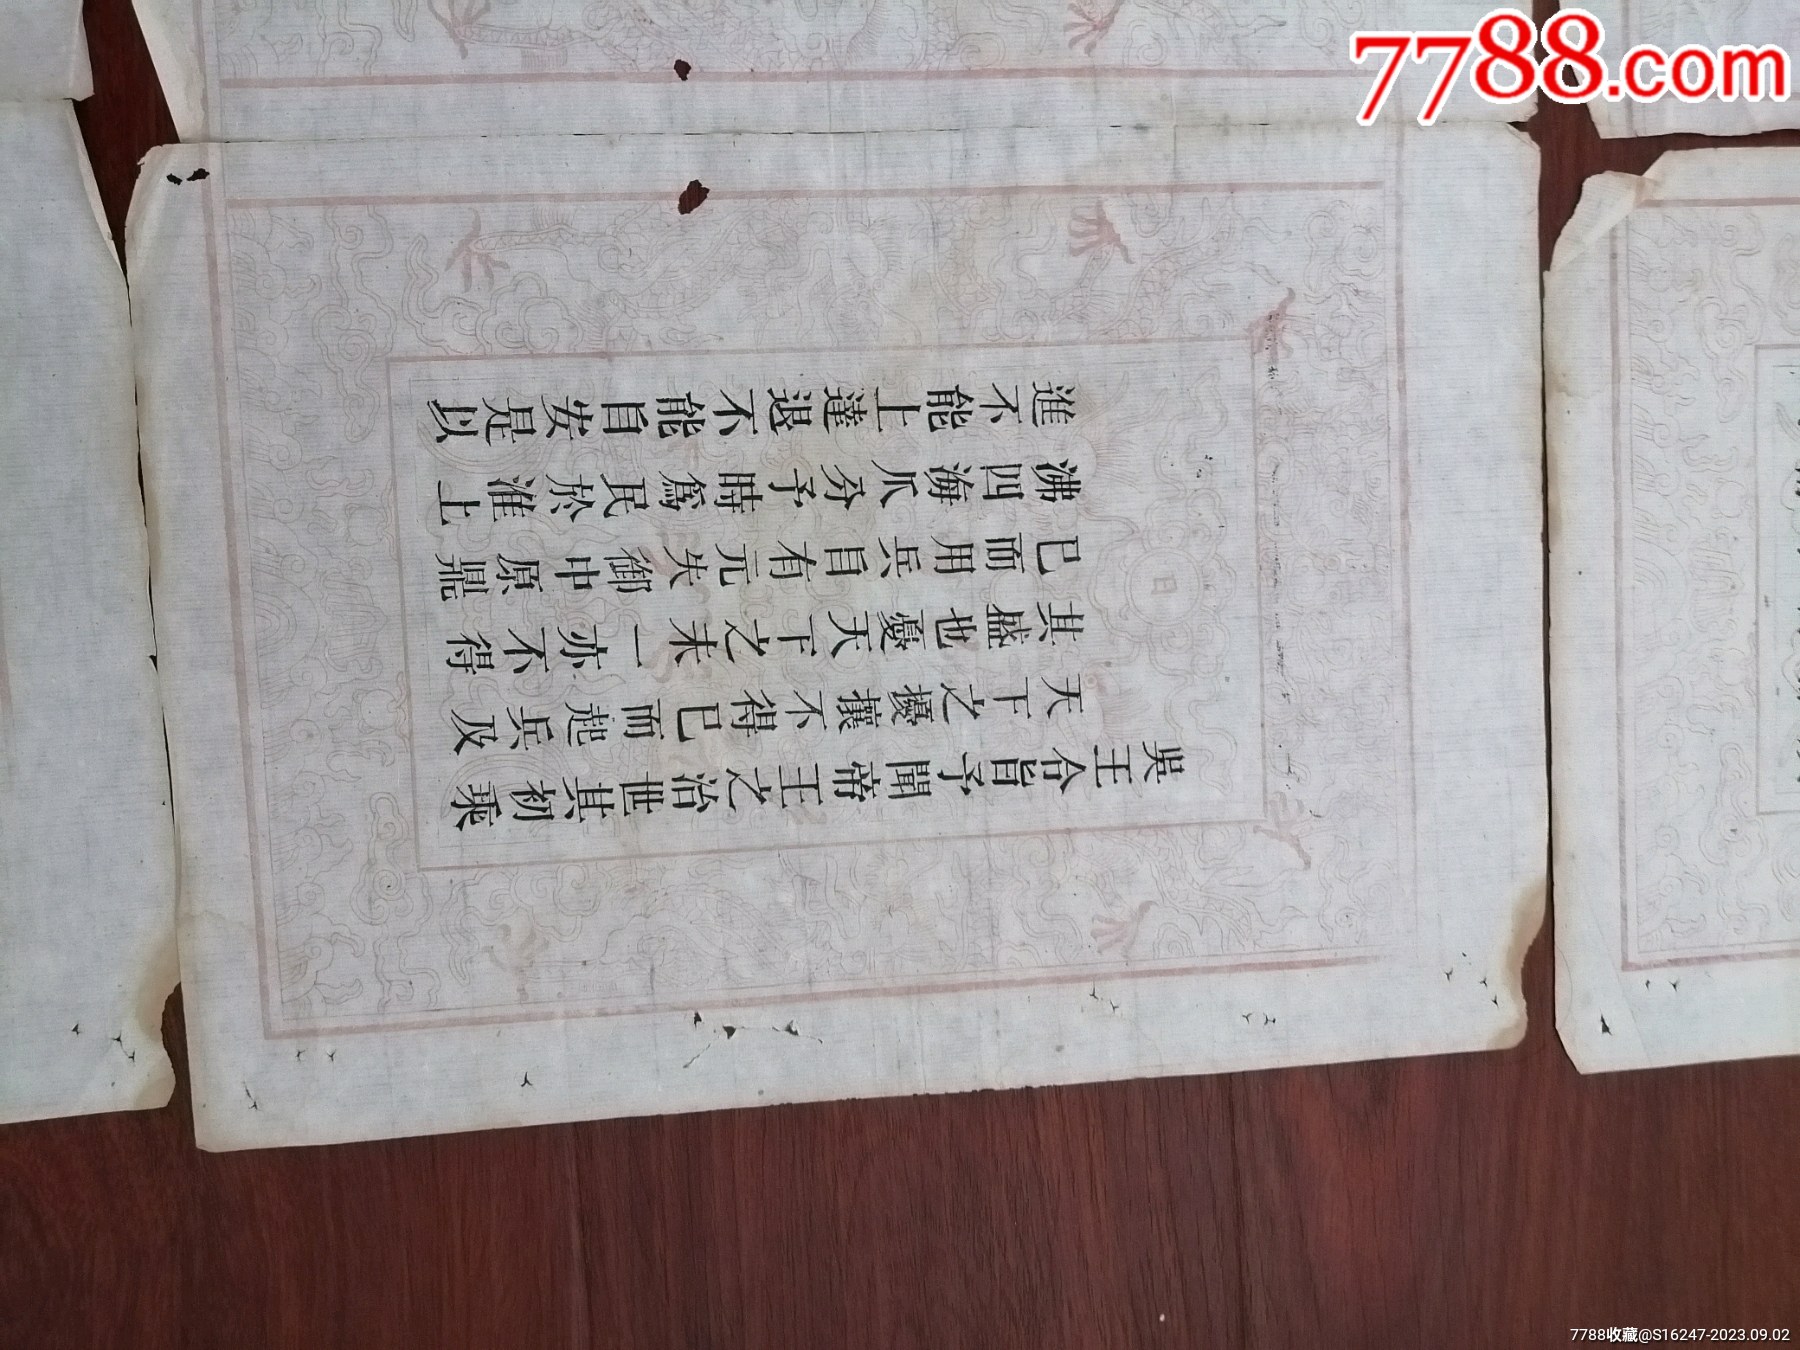 吳王令旨予聞帝王之治世其初乘
天下之擾攘不得已而起兵及
其盛也憂天下之未一亦不得
已而用兵自有元失御中原鼎
沸四海瓜分予時爲民於淮上
進不能上達退不能自安是以
日
7788.com
7788收藏@S16247-2023.09.02